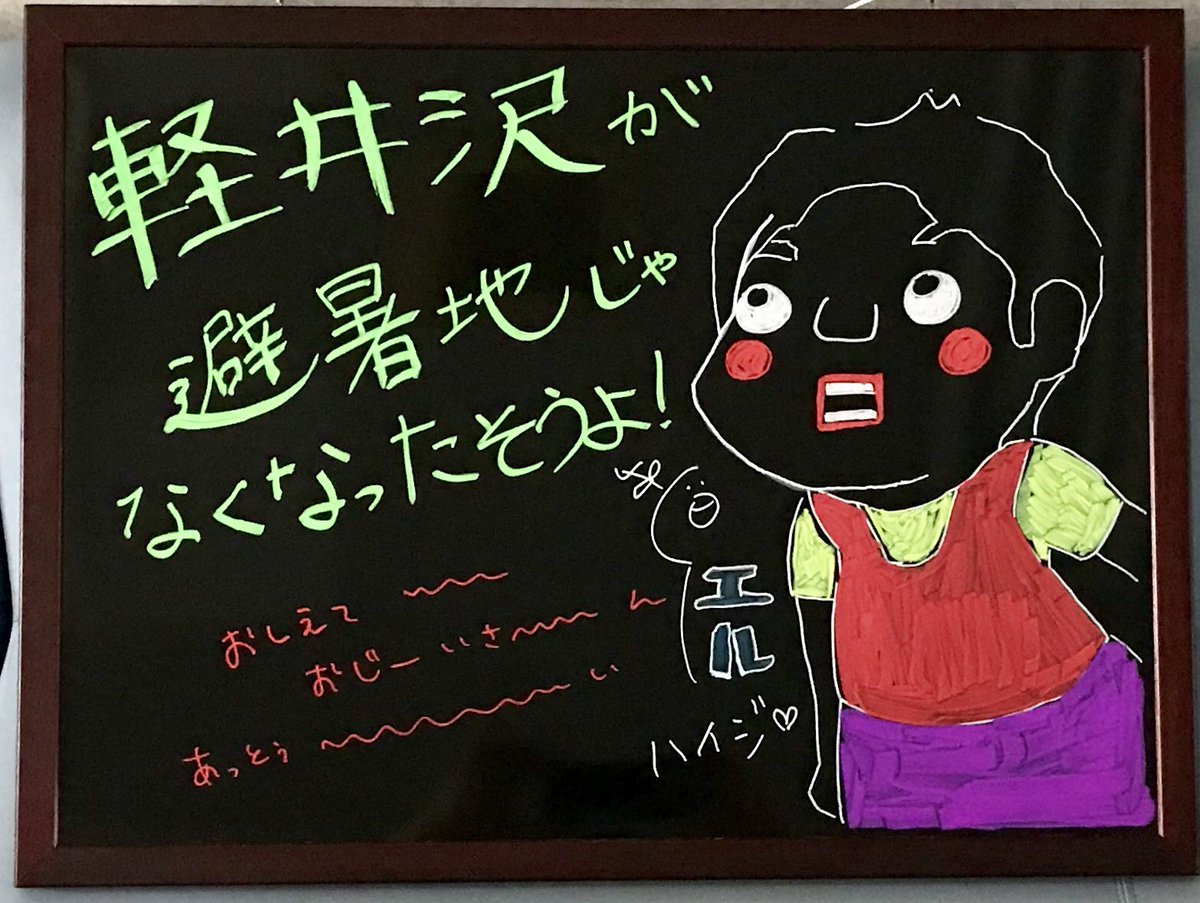 軽井沢が
避暑地じゃ
なくなったそうよ!
おしえて〜〜
おじーいさ〜〜〜ん
あっとぅ〜〜〜〜〜い
エル
ハイジ♡